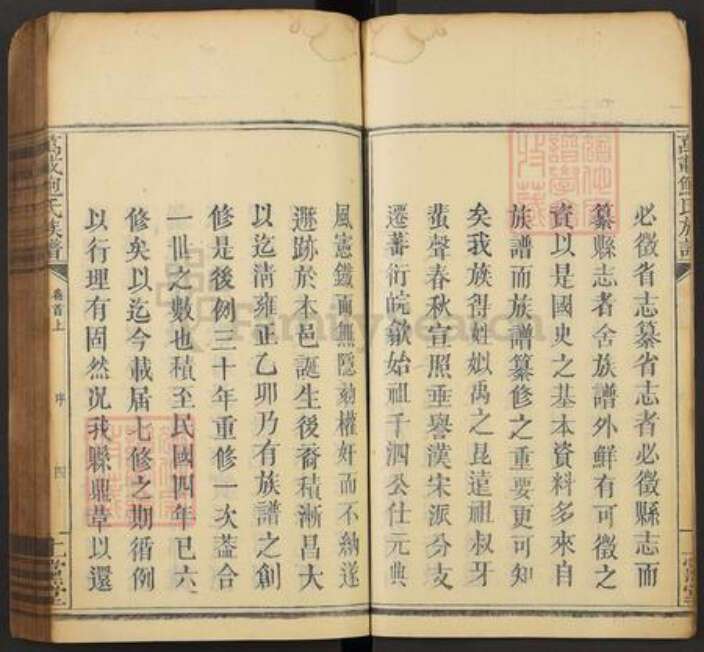 必徵省志纂省志者必徵縣志而
纂縣志者舍族譜外鮮有可徵之
資以是國史之基本資料多來自
族譜而族譜纂修之重要更可知
矣我族得姓姒禹之昆遠祖叔牙
蜚聲春秋宣照垂譽漢宋派分支
遷蕃衍皖歙始祖千泗公仕元典
風憲鐵面無隱劾權奸而不納遂
遯跡於本邑誕生後裔積漸昌大
以迄清雍正乙卯乃有族譜之創
修是後例三十年重修一次蓋合
一世之數也積至民國四年已六
修矣以迄今載届七修之期循例
以行理有固然况我縣鼎革以還
萬載鮑氏族譜
卷首上
序
四
FamilySearch